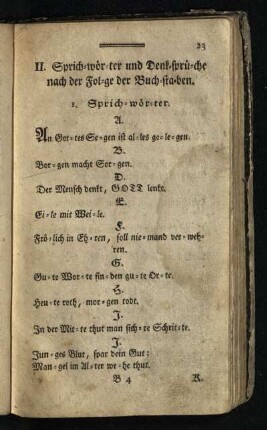 23
II. Sprich=wör=ter und Denk=sprü=che
nach der Fol=ge der Buch=sta=ben.
1. Sprich=wör=ter.
A.
An Got=tes Se=gen ist al=les ge=le=gen.
B.
Bor=gen macht Sor=gen.
D.
Der Mensch denkt, GOTT lenkt.
E.
Ei=le mit Wei=le.
F.
Frö=lich in Eh=ren, soll nie=mand ver=weh=
ren.
G.
Gu=te Wor=te fin=den gu=te Or=te.
H.
Heu=te roth, mor=gen todt.
I.
In der Mit=te thut man sich=re Schrit=te.
J.
Jun=ges Blut, spar dein Gut;
Man=gel im Al=ter we=he thut.
B 4 K.